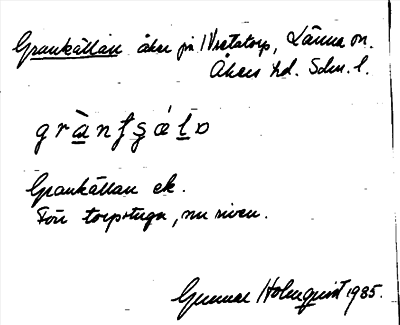 Grankällan åker på Vretstorp, Länna sn.
Åkers hd. Söm. l.
grànʃʂǽlɒ
Grankällan ek.
Förr torpstuga, nu riven.
Gunnar Holmquist 1985.